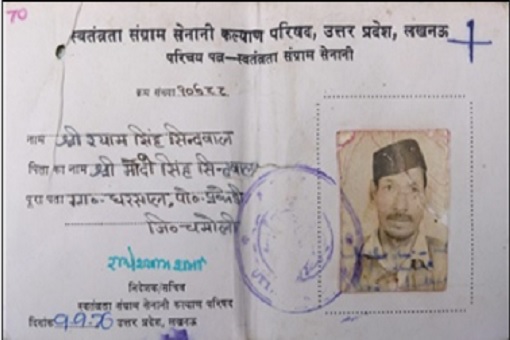 70
स्वतंत्रता संग्राम सेनानी कल्याण परिषद, उत्तर प्रदेश, लखनऊ
परिचय पत्र—स्वतंत्रता संग्राम सेनानी
क्रम संख्या १०६८८
नाम श्री श्याम सिंह सिन्दवाल
पिता का नाम श्री मोदी सिंह सिन्दवाल
पूरा पता ग्रा०- घरसाएल, पो०-
जि०-चमोली
राधेश्याम शर्मा
निदेशक/सचिव
स्वतंत्रता संग्राम सेनानी कल्याण परिषद
दिनांक 9.9.76 उत्तर प्रदेश, लखनऊ